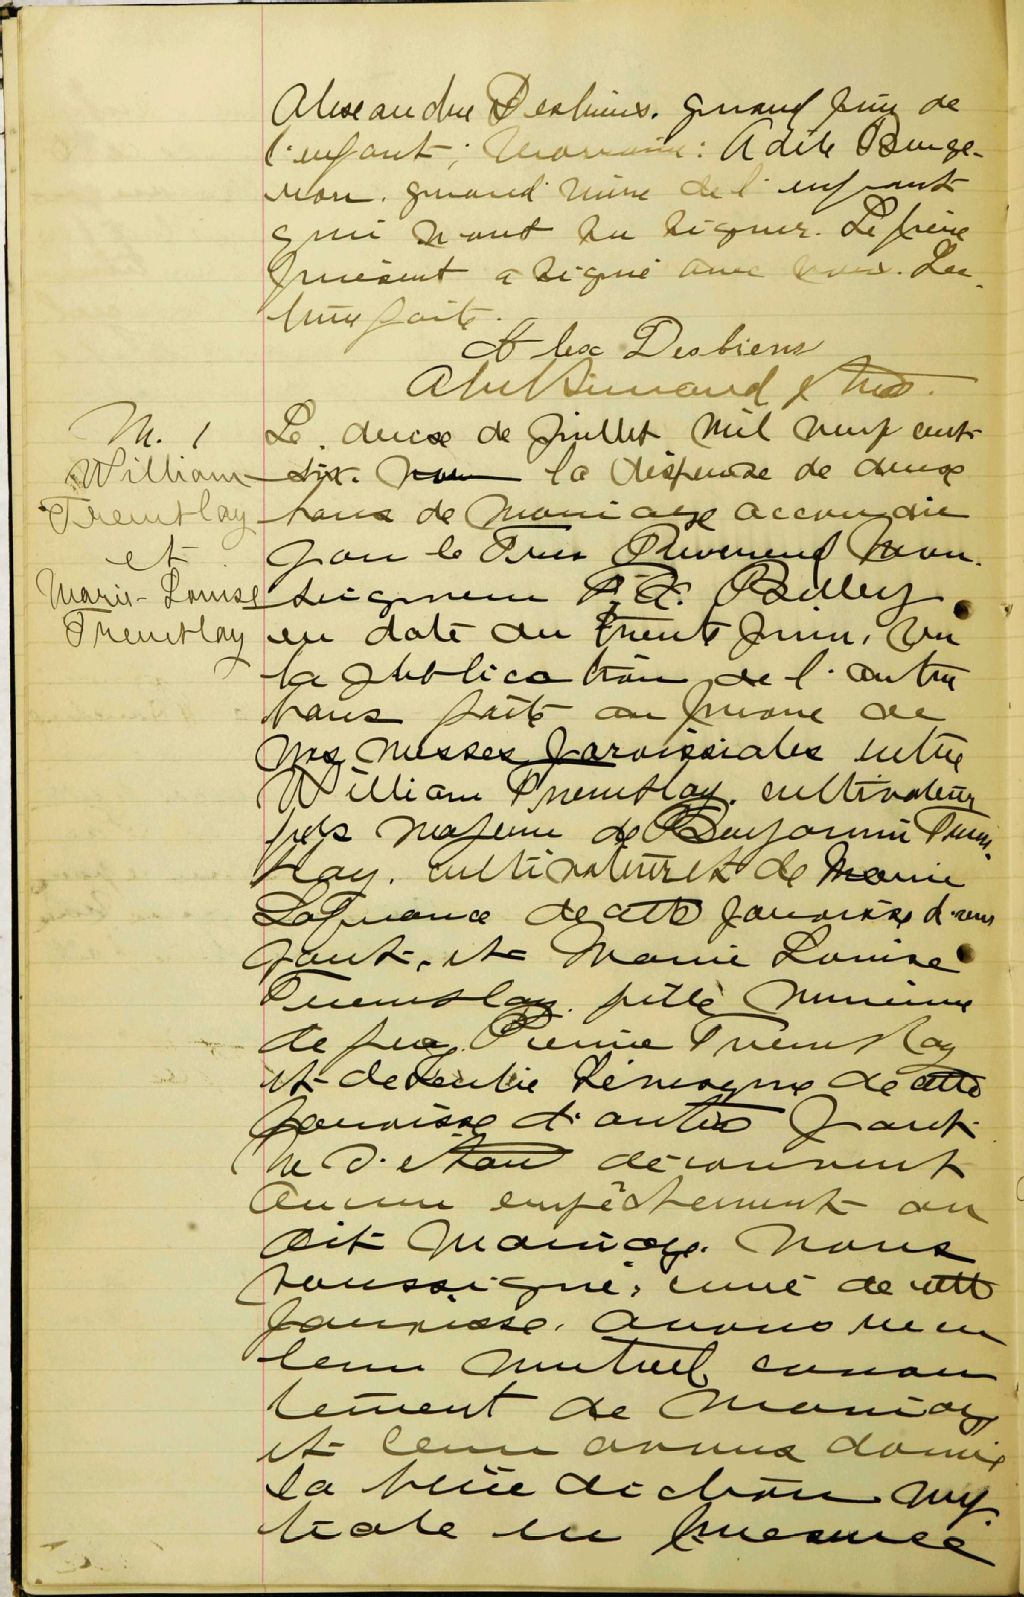 Alexandre Desbiens. grand père de
l'enfant; Marraine: Adèle Berge-
ron. grand'mère de l'enfant
qui n'ont su signer. Le père
présent a signé avec nous. Lec-
ture faite.
Alex Desbiens
Abel Simard ptre
M. 1
William
Tremblay
et
Marie-Louise
Tremblay
Le deux de Juillet mil neuf cent
six. vu la dispense de deux
bans de mariage accordée
par le Très Révérend Mon-
seigneur F.X. Belley
en date du trente Juin, vu
la publication de l'autre
bans faite au prône de
nos messes paroissiales entre
William Tremblay. cultivateur
fils majeur de Benjamin Trem-
blay. cultivateur et de Marie
Lafrance de cette paroisse d'une
part, et Marie Louise
Tremblay. fille mineure
de feu Pierre Tremblay
et de de cette
paroisse d'autre part
ne s'étant découvert
aucun empêchement au
dit mariage. Nous
soussigné, curé de cette
paroisse. avons reçu
leur mutuel consen
tement de mariage
et leur avons donné
la bénédiction nup-
tiale en présence